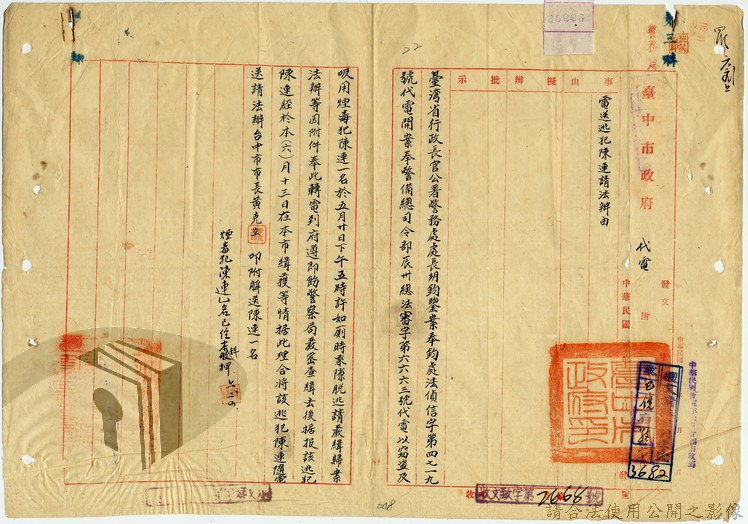 臺中市政府 代電
發文 附
中華民國
事由 擬辦 批示
電送逃犯陳連請法辦由
臺灣省行政長官公署警務處處長胡鈞鑒案奉鈞處法偵信字第四七一九
號代電開案奉警備總司令部辰卅總法審字第六六六三號代電以竊盜及
吸用煙毒犯陳連一名於五月廿日下午五時許如廁時乘隙脫逃請嚴緝歸案
法辦等因附件奉此轉電到府遵即飭警察局嚴密查緝去後據報該逃犯
陳連經於本(六)月十三日在本市緝獲等情據此理合將該逃犯陳連隨電
送請法辦台中市市長黃克立 叩附解送陳連一名
煙毒犯陳連乙名已經本科收押 六、二、四
22
臺中市政府印
3682
收文致字第7668號
請合法使用公開之影像